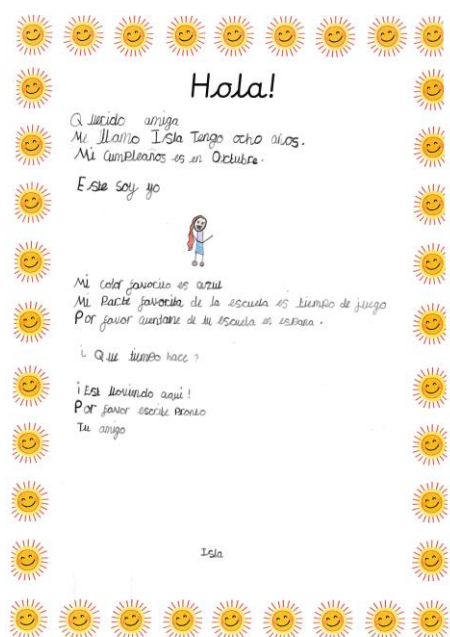 Hola!
Querido amiga
Me llamo Isla Tengo ocho años.
Mi cumpleaños es en Octubre.
Este soy yo
Mi color favorito es azul
Mi Parte favorita de la escuela es tiempo de juego
Por favor cuentame de tu escuela en espana.
¿ Que tiempo hace ?
¡ Est lloviendo aqui !
Por favor escribe Pronto
Tu amigo
Isla